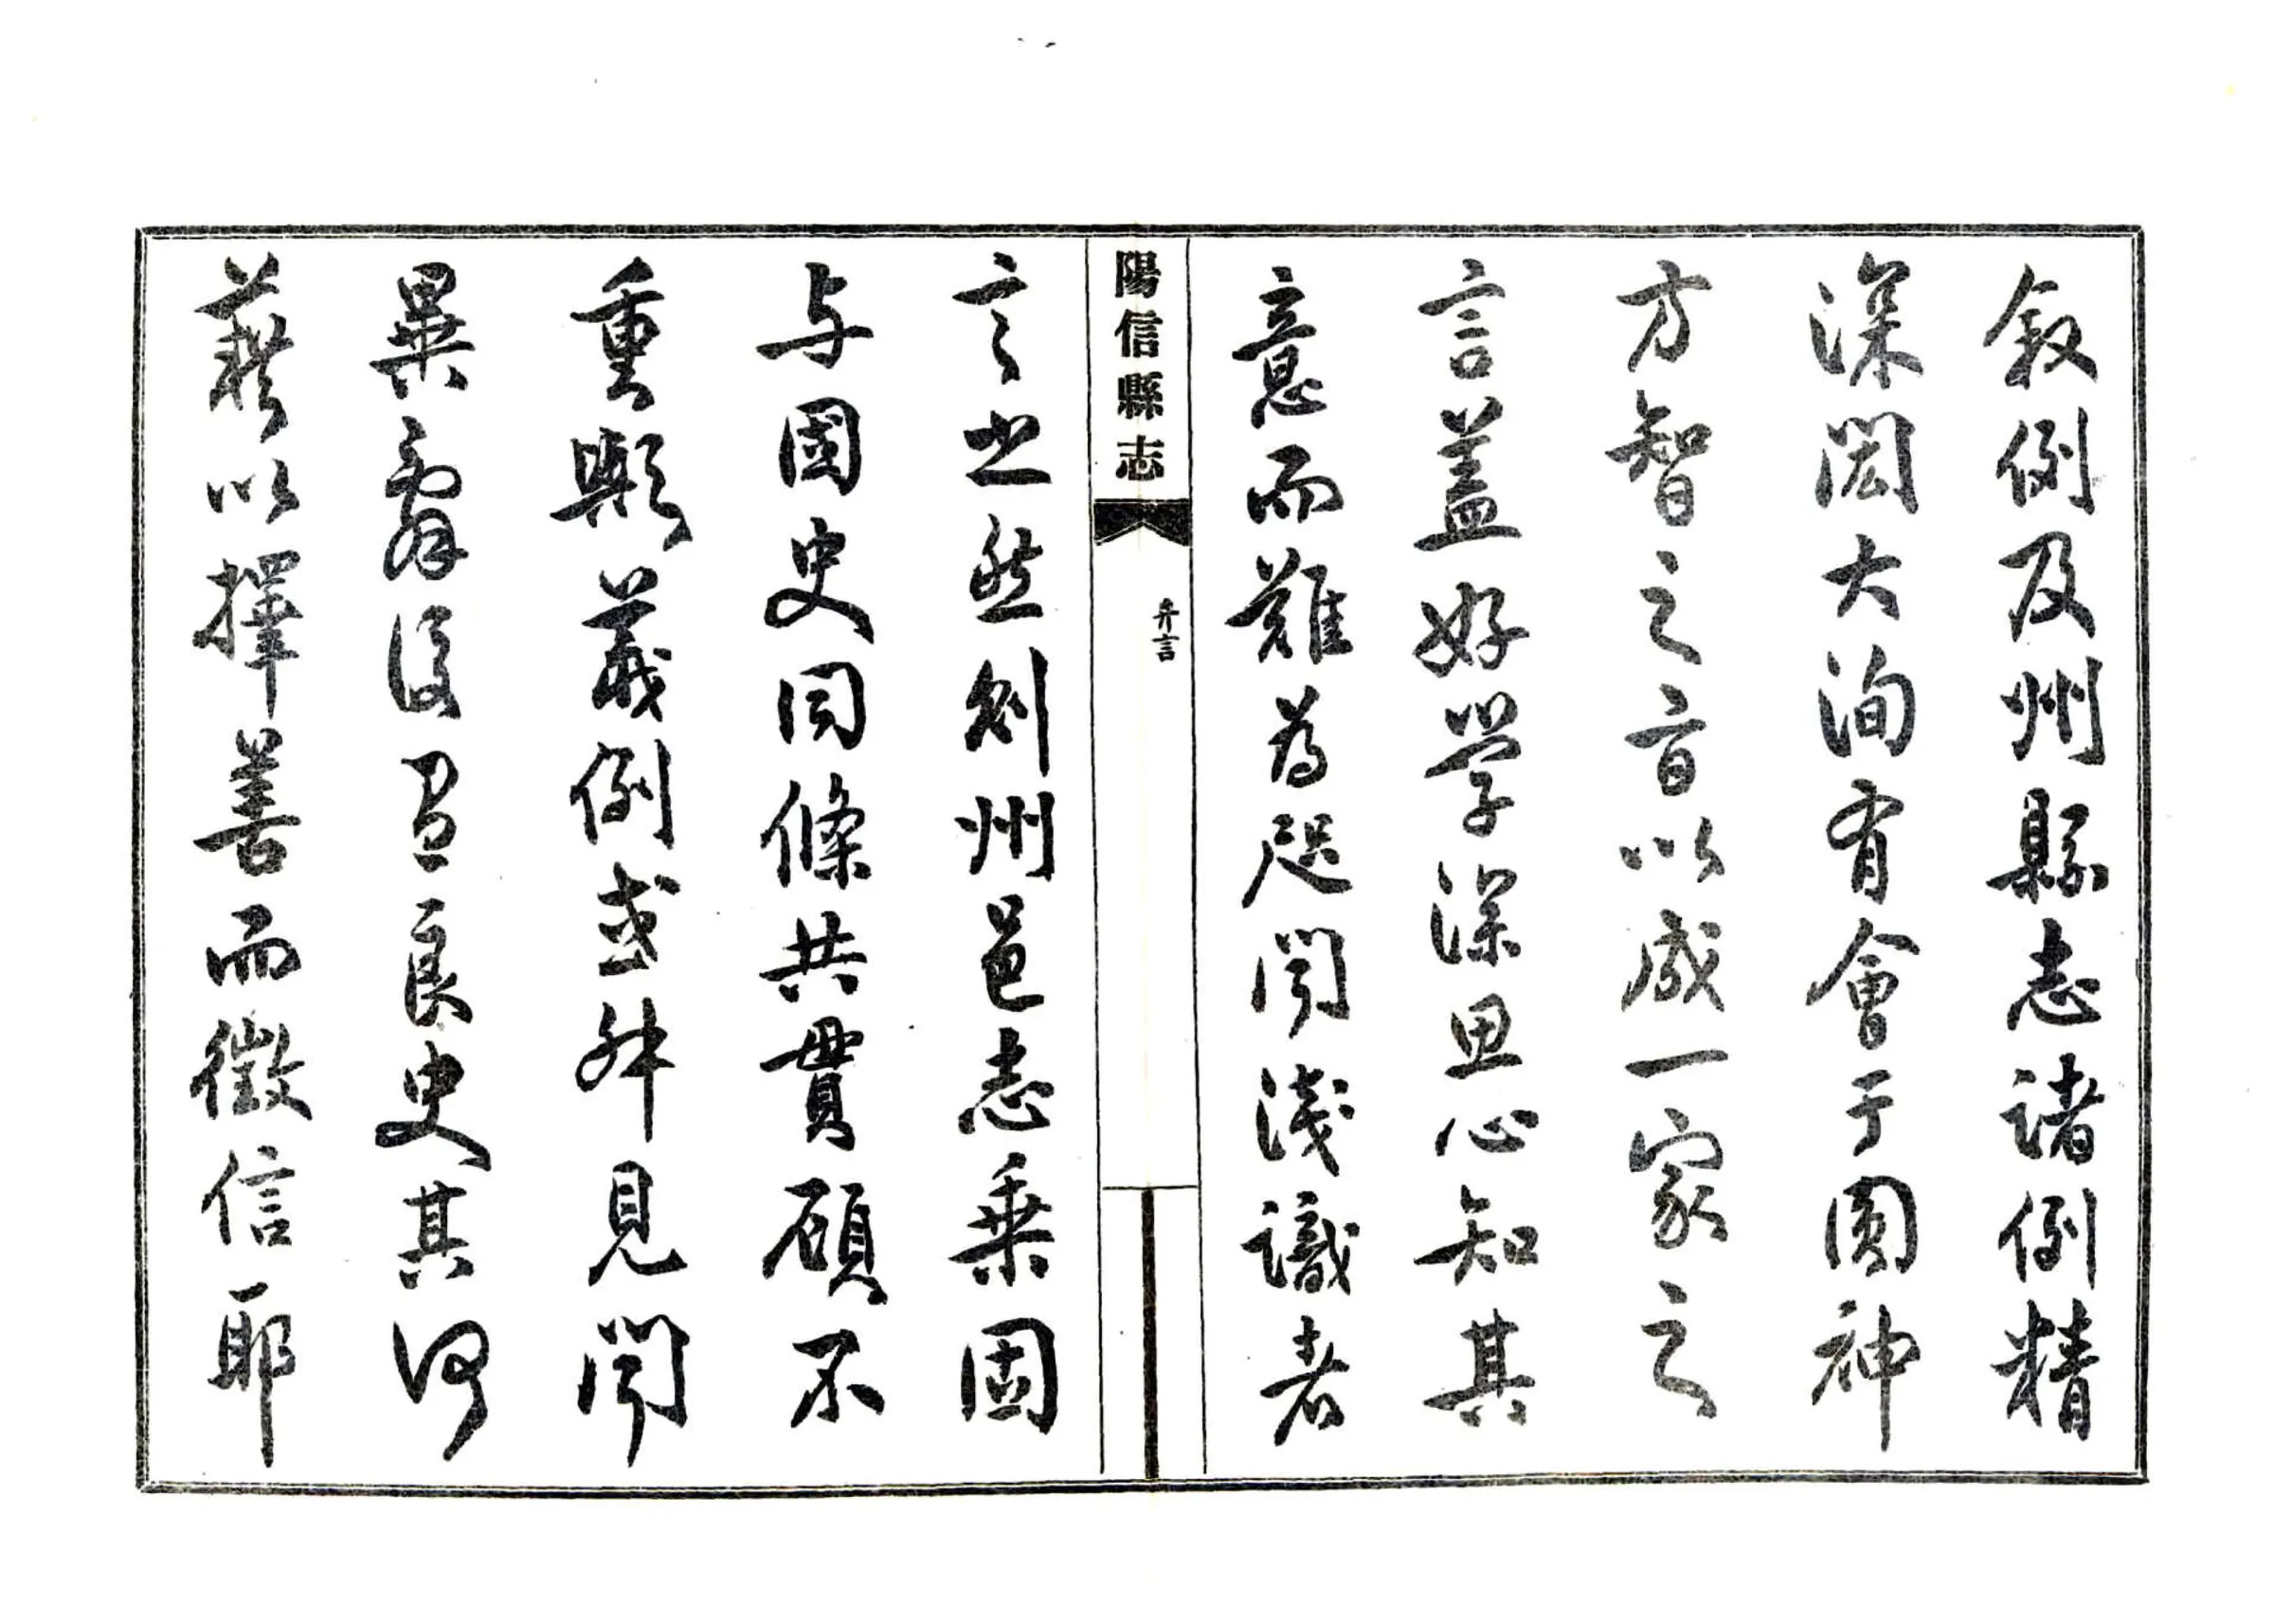 叙例及州縣志諸例精
深閎大洵有會于圓神
方智之旨以成一家之
言盖好学深思心知其
意而難為咫聞淺識者
陽信縣志
弁言
言也然則州邑志乘固
与國史同條共貫顧不
重歟義例或舛見聞
異辭後良史其何
藉以擇善而徵信耶